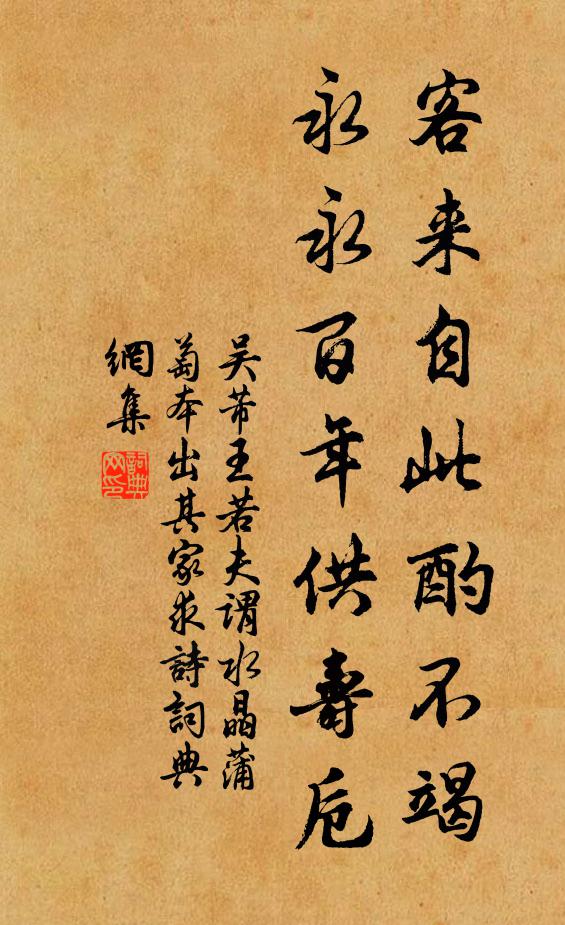 客来自此酌不竭
永永百年供壽卮
吴芾王若夫謂水晶蒲
萄本出其家求詩詞典
網集
詞典
网印